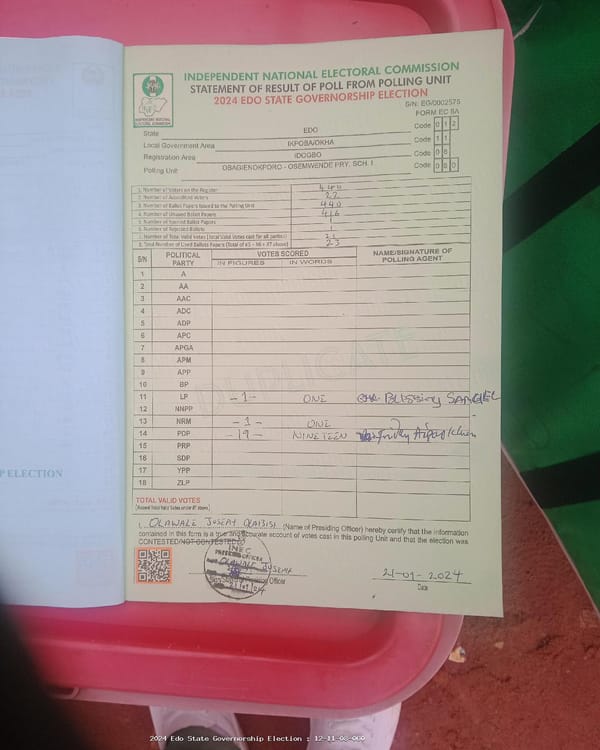 INDEPENDENT NATIONAL ELECTORAL COMMISSION
STATEMENT OF RESULT OF POLL FROM POLLING UNIT
2024 EDO STATE GOVERNORSHIP ELECTION
S/N: EG/0002575
FORM EC 8A
State EDO Code 0 1 2
Local Government Area IKPOBA/OKHA Code 1 1
Registration Area IDOGBO Code 0 8
Polling Unit OBAGIENOKPORO - OSEMWENDE PRY. SCH. I Code
1. Number of Voters on the Register 440
2. Number of Accredited Voters 22
3. Number of Ballot Papers Issued to the Polling Unit 440
4. Number of Unused Ballot Papers 416
5. Number of Spoiled Ballot Papers 1
6. Number of Rejected Ballots 1
7. Number of Total Valid Votes (Total Valid Votes cast for all parties) 21
8. Total Number of Used Ballots Papers (Total of #5 + #6 + #7 above) 23
S/N POLITICAL PARTY VOTES SCORED NAME/SIGNATURE OF POLLING AGENT
IN FIGURES IN WORDS
1 A
2 AA
3 AAC
4 ADC
5 ADP
6 APC
7 APGA
8 APM
9 APP
10 BP
11 LP -1- ONE BLESSING
12 NNPP
13 NRM -1- ONE
14 PDP -19- NINETEEN
15 PRP
16 SDP
17 YPP
18 ZLP
DUPLICATE
TOTAL VALID VOTES
I, OLAWALE JOSEPH OLABISI (Name of Presiding Officer) hereby certify that the information
contained in this form is a true and accurate account of votes cast in this polling Unit and that the election was
CONTESTED/NOT CONTESTED
INEC
PRESIDING OFFICER
OLAWALE JOSEPH
Presiding Officer
21-09-2024
Date
P ELECTION
2024 Edo State Governorship Election : 12-11-08-060